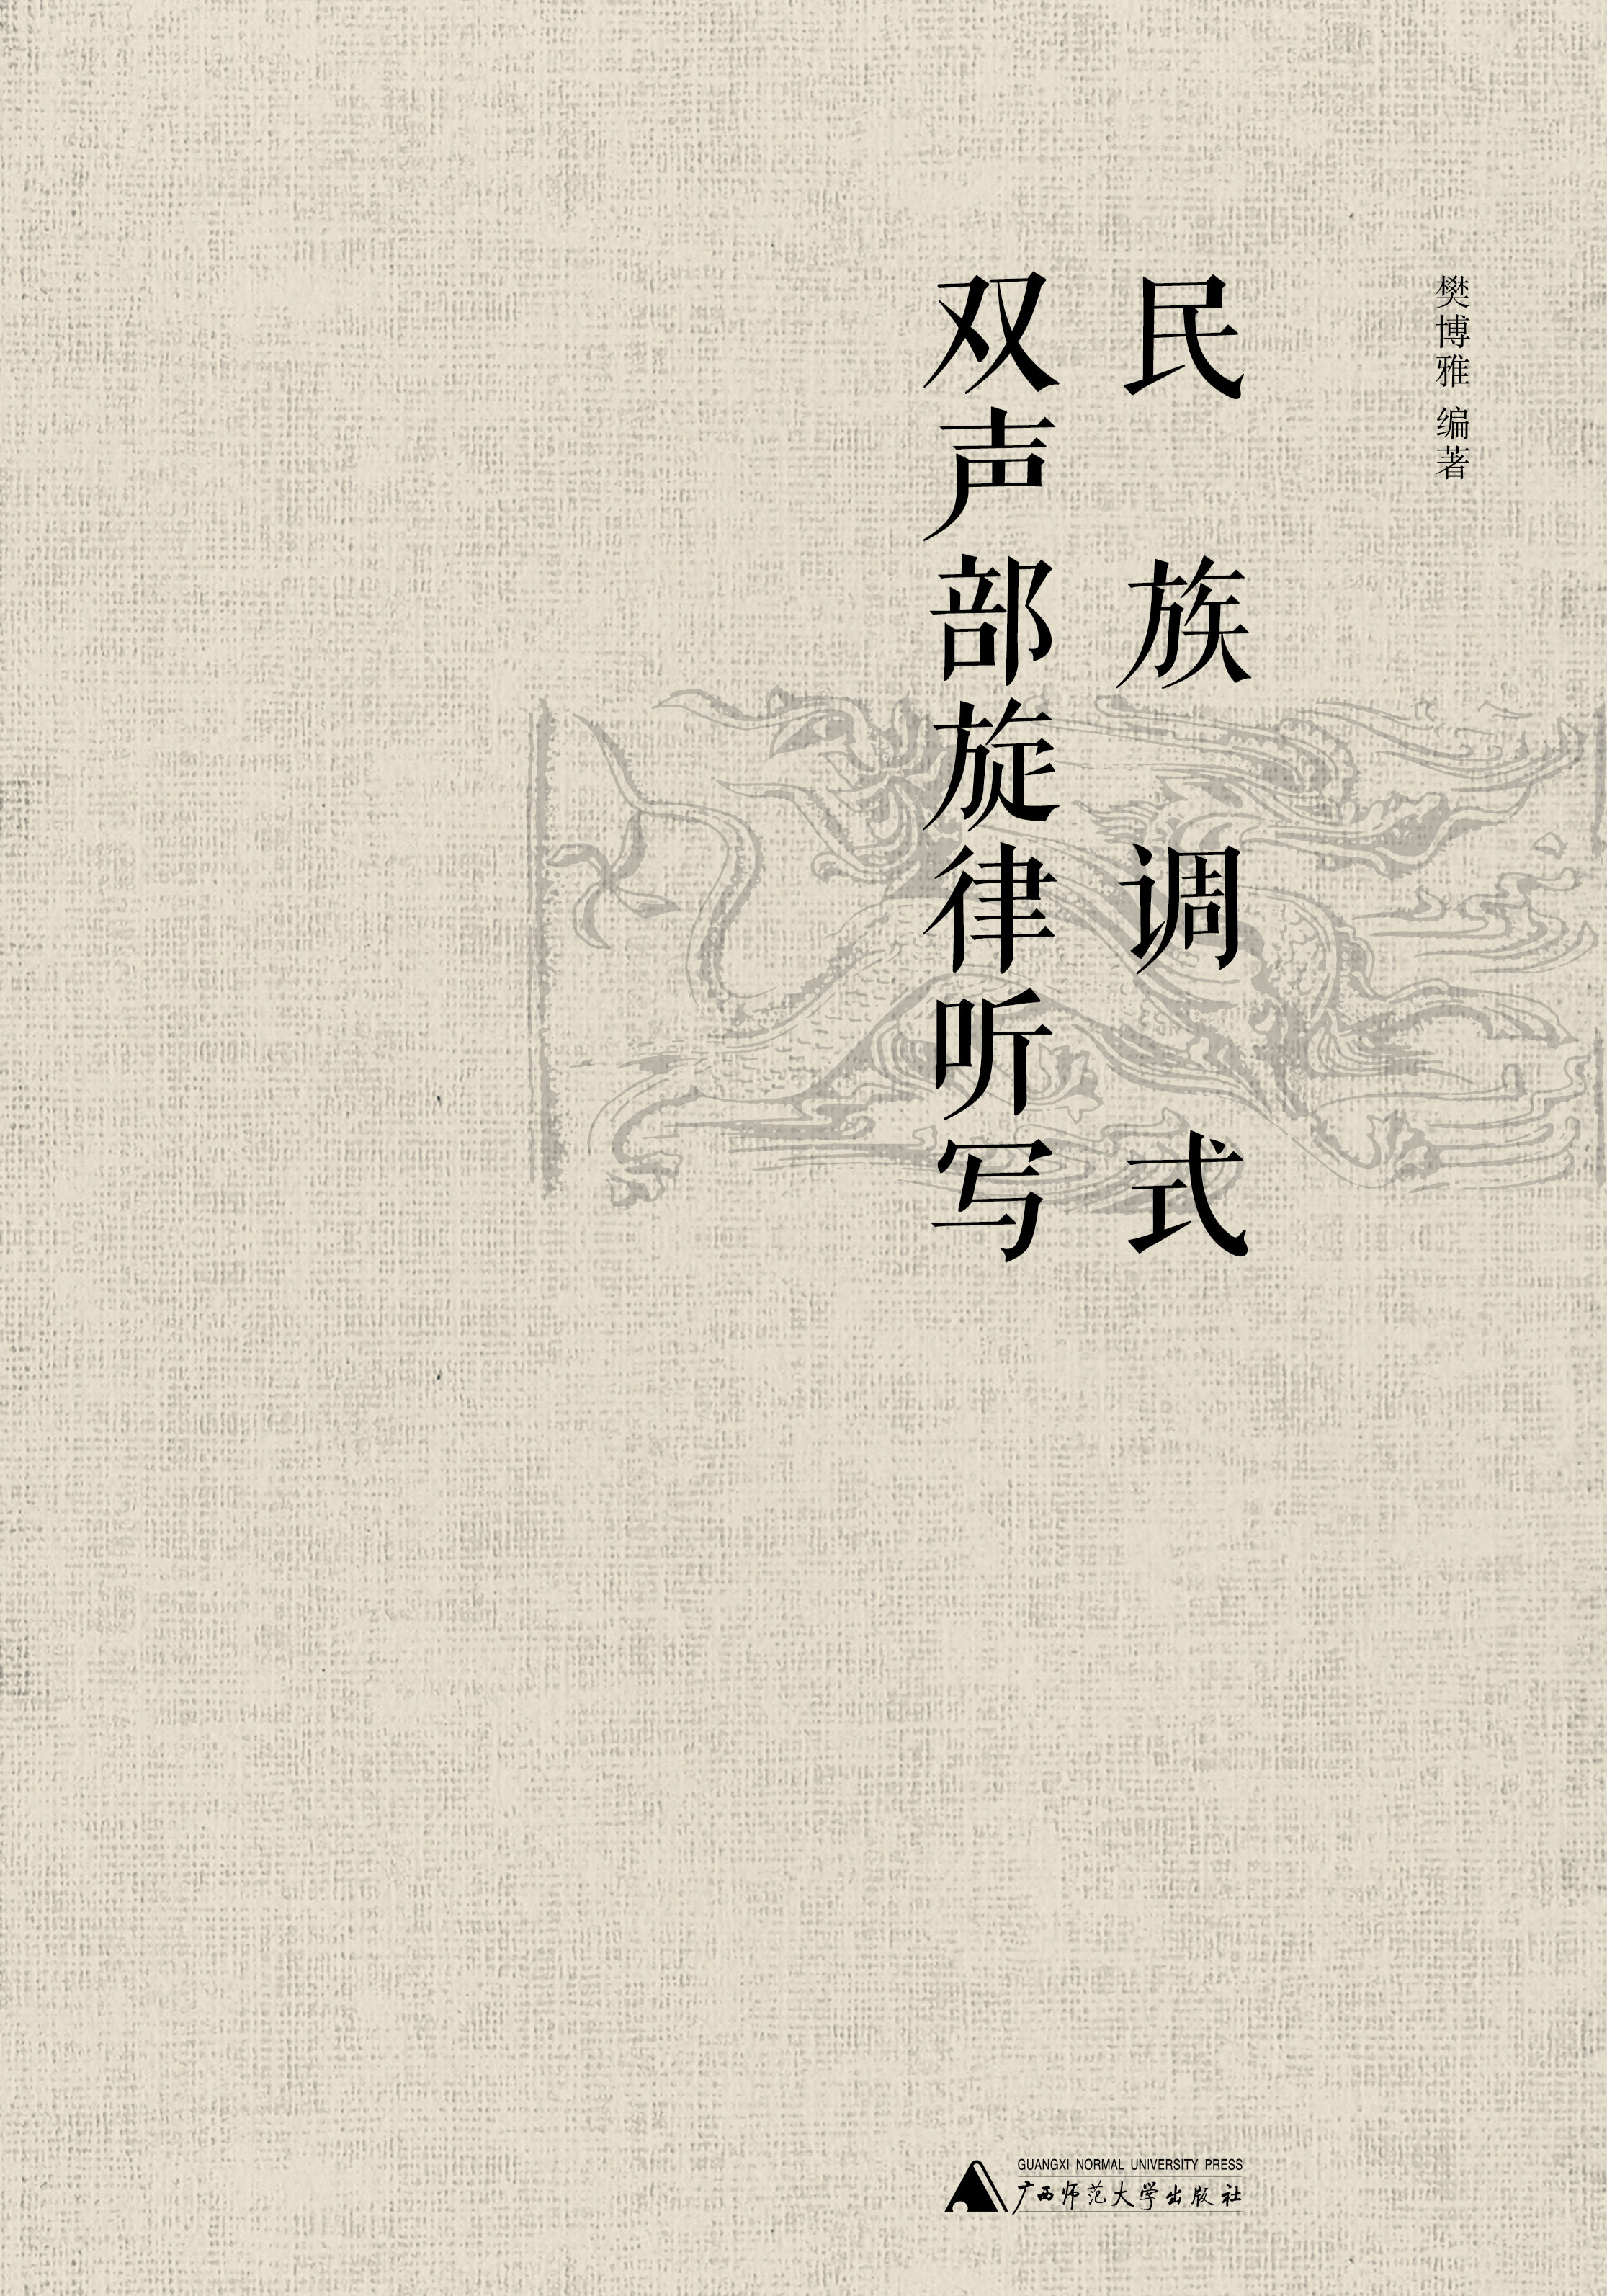 樊博雅 编著
民族调式
双声部旋律听写
GUANGXI NORMAL UNIVERSITY PRESS
广西师范大学出版社